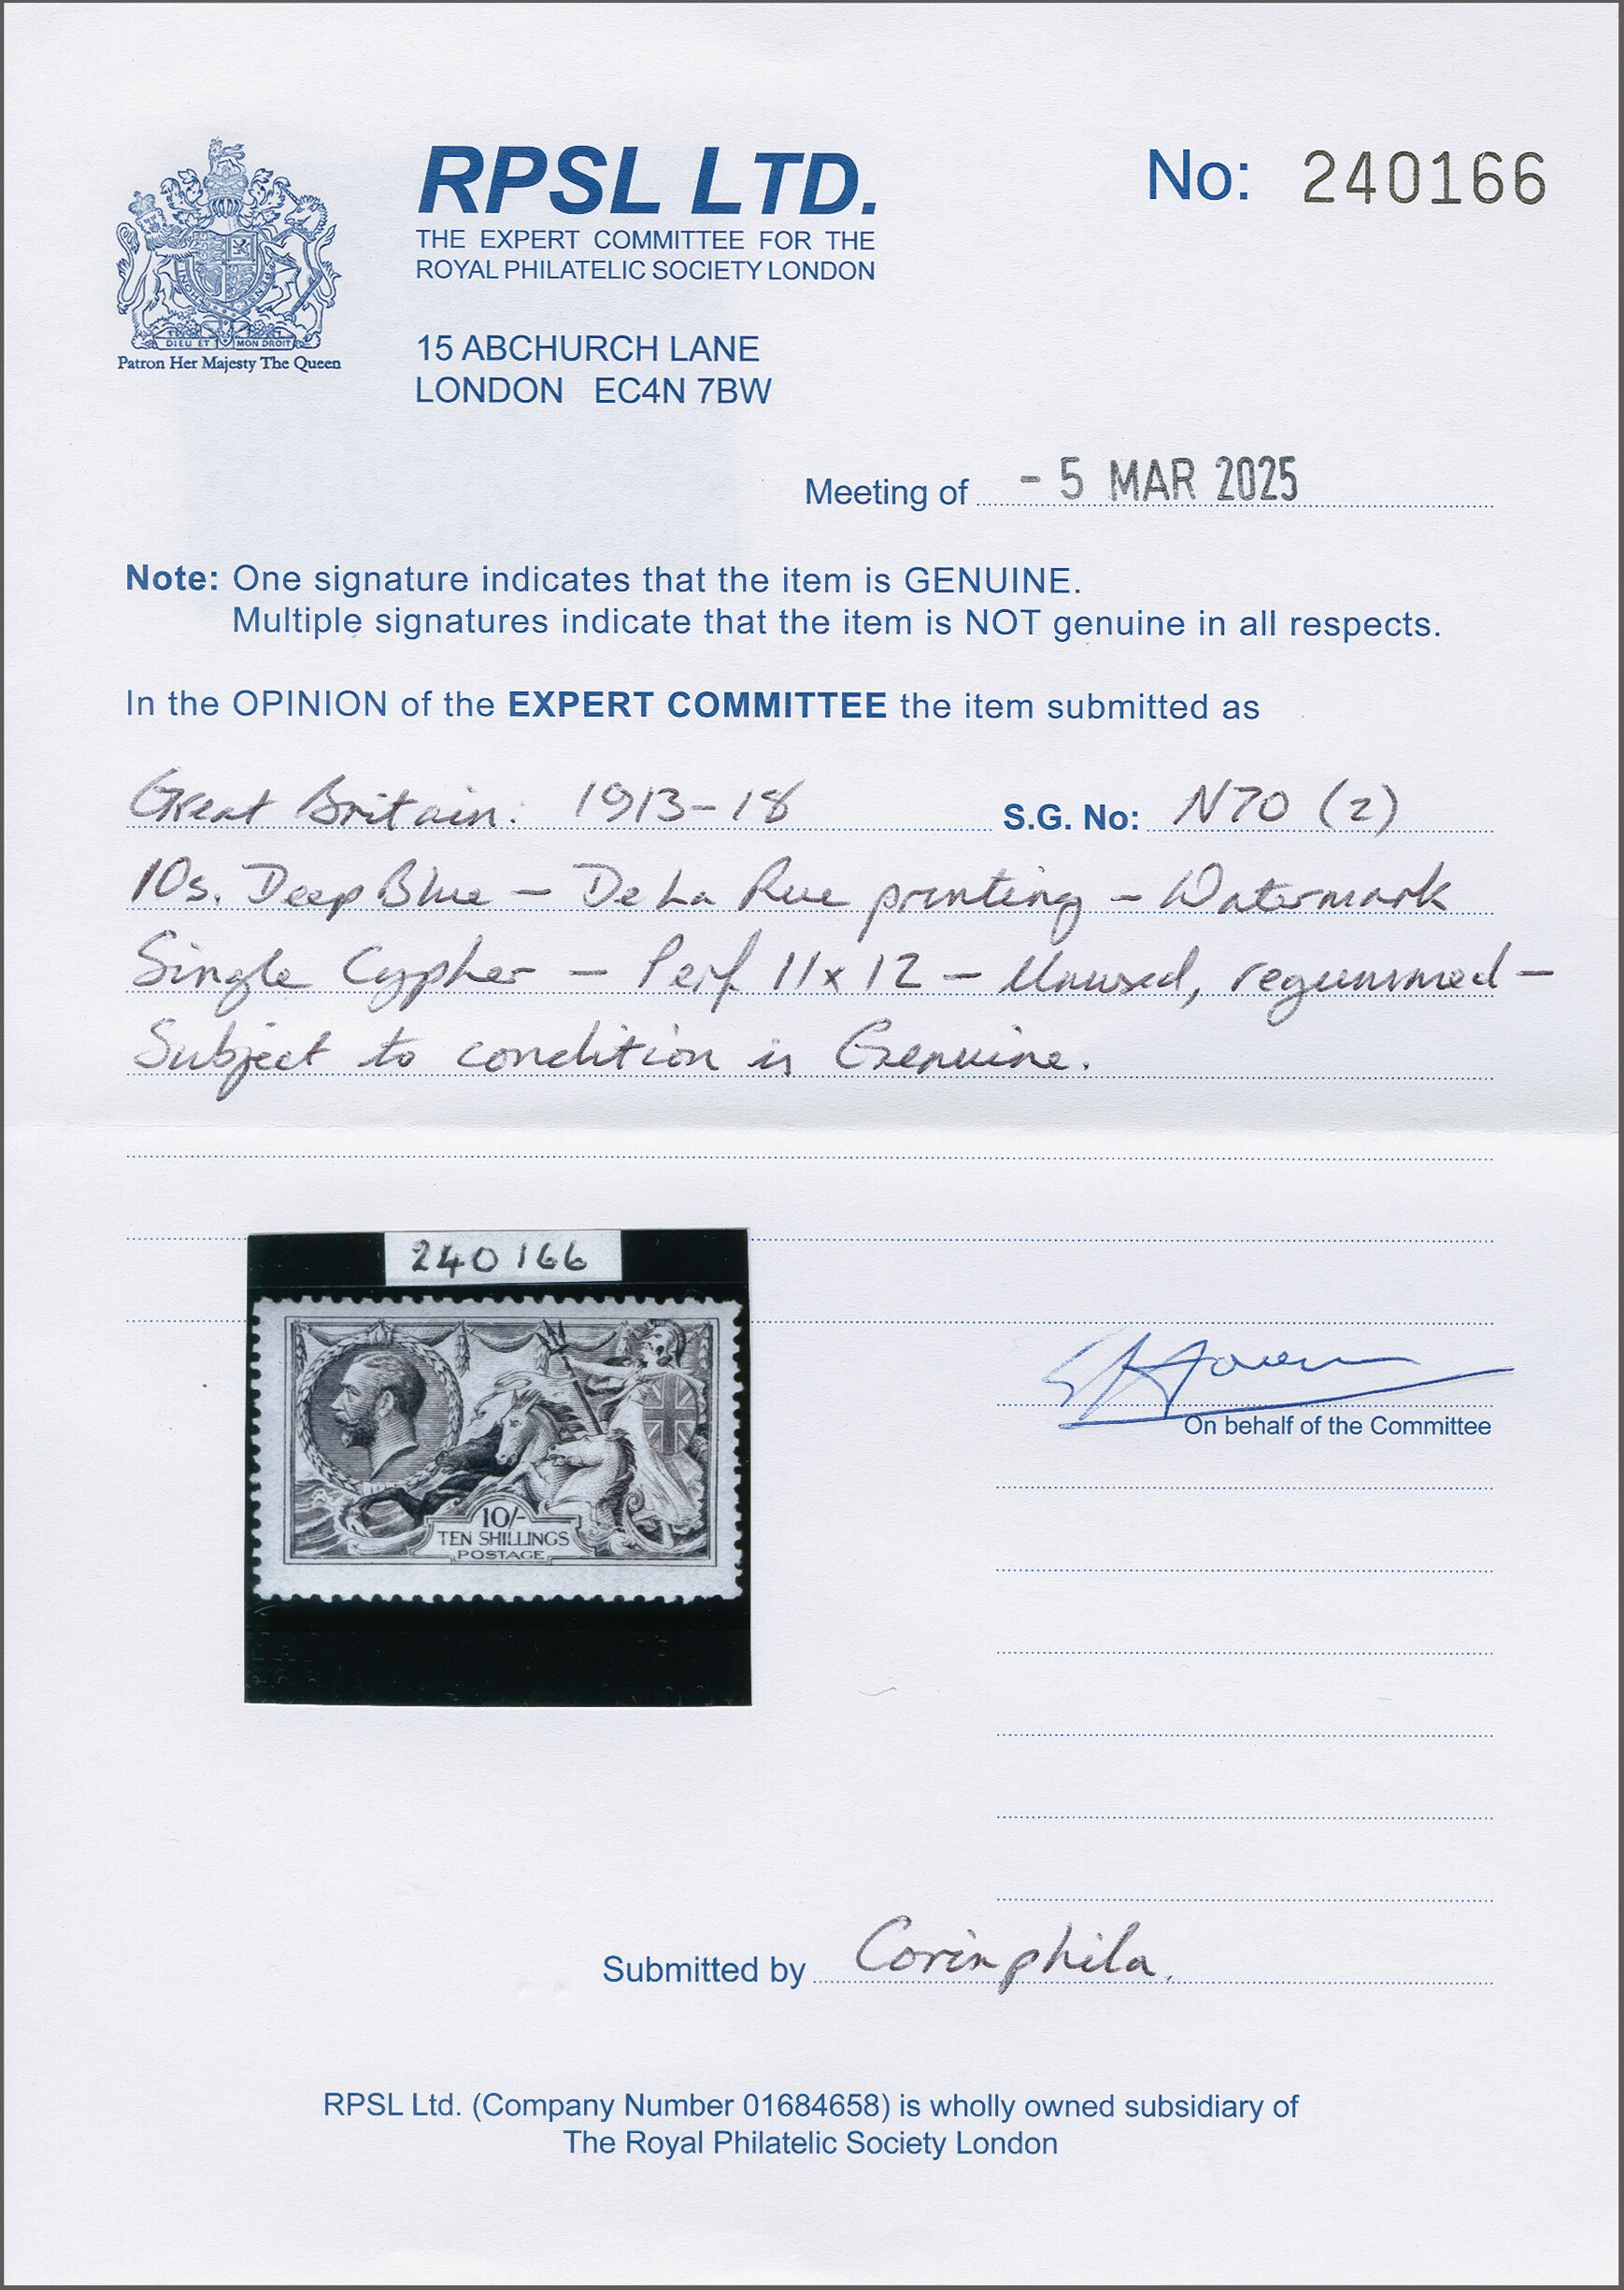 RPSL LTD.
No: 240166
THE EXPERT COMMITTEE FOR THE
ROYAL PHILATELIC SOCIETY LONDON
DIEU ET MON DROIT
Patron Her Majesty The Queen
15 ABCHURCH LANE
LONDON EC4N 7BW
Meeting of - 5 MAR 2025
Note: One signature indicates that the item is GENUINE.
Multiple signatures indicate that the item is NOT genuine in all respects.
In the OPINION of the EXPERT COMMITTEE the item submitted as
Great Britain: 1913-18 S.G. No: N70 (2)
10s. Deep Blue - De La Rue printing - Watermark
Single Cypher - Perf 11x12 - Unused, regummed -
Subject to condition is Genuine.
240166
10/-
TEN SHILLINGS
POSTAGE
On behalf of the Committee
Submitted by Corinphila.
RPSL Ltd. (Company Number 01684658) is wholly owned subsidiary of
The Royal Philatelic Society London